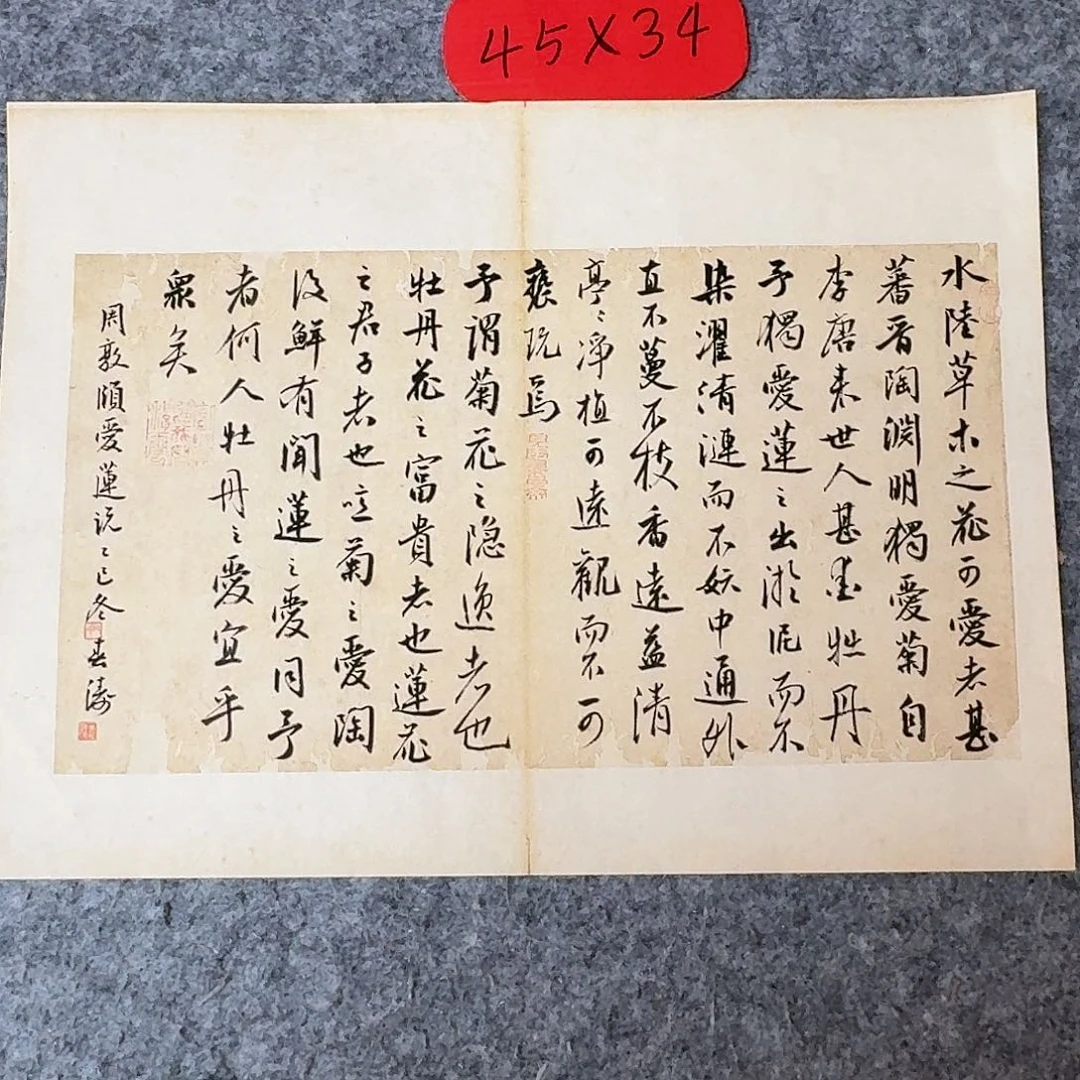 45X34
水陸草木之花可愛者甚
蕃晋陶淵明獨愛菊自
李唐来世人甚牡丹
予獨愛蓮之出淤泥而不
染濯清漣而不妖中通外
直不蔓不枝香遠益清
亭〻淨植可遠觀而不可
褻玩焉
予謂菊花之隐逸者也
牡丹花之富貴者也蓮花
之君子者也噫菊之愛陶
後鮮有聞蓮之愛同予
者何人牡丹之愛宜乎
眾矣
周敦頤愛蓮説乙巳冬春濤